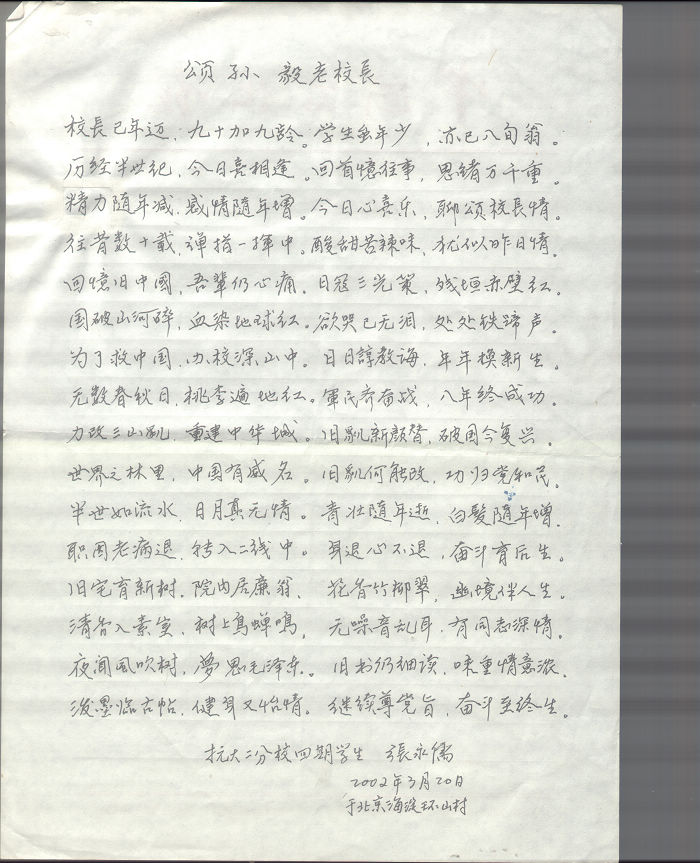 颂孙毅老校長
校長已年迈,九十加九龄。学生虽年少,亦已八旬翁。
历经半世纪,今日喜相逢。回首憶往事,思绪万千重。
精力随年减,感情随年增。今日心喜乐,聊颂校長情。
往昔数十载,弹指一挥中。酸甜苦辣味,犹似昨日情。
回憶旧中國,吾辈仍心痛,日寇三光策,残垣赤壁红。
国破山河碎,血染地球红。欲哭已无泪,处处铁蹄声。
为了救中国,办校深山中。日日諄教诲,年年换新生。
无数春秋日,桃李遍地红。軍民齐奋战,八年终成功。
力改三山飢,重建中华城。旧飢新颜替,破国今复兴。
世界之林里,中国有威名。旧飢何能改,功归党和民。
半世如流水,日月真无情。青壮随年逝,白髮随年增。
职因老病退,转入二线中。身退心不退,奋斗育后生。
旧宅育新树,院内居廉翁,花香竹柳翠,幽境伴人生。
清香入素室,树上鳥蝉鳴,无噪音乱耳,有同志深情。
夜间風吹树,夢思毛泽东。旧书仍细读,味重情意浓。
泼墨临古帖,健身又怡情。继续尊党旨,奋斗至终生。
抗大二分校四期学生 張永儒
2002年3月20日
于北京海淀环山村